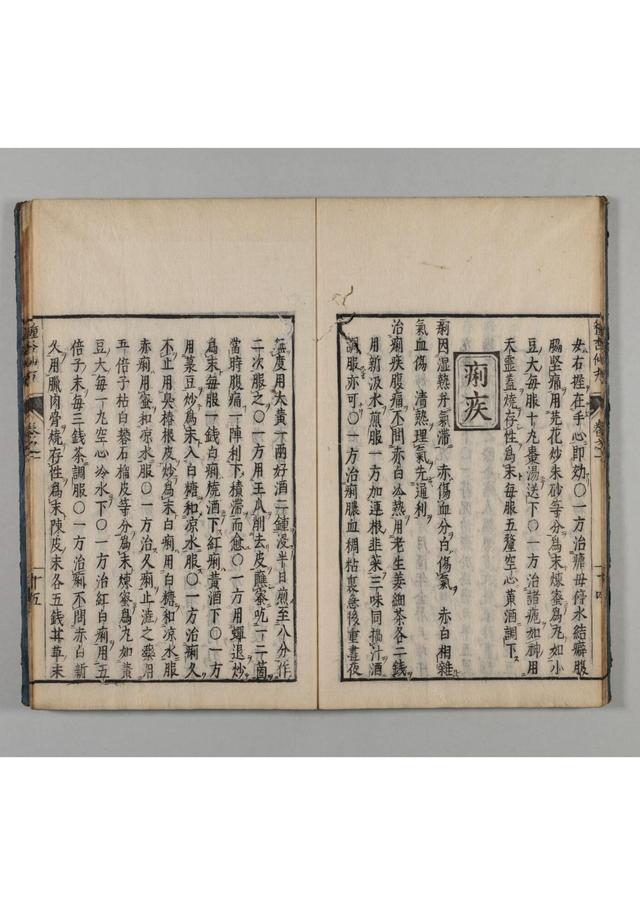 女右揑在手心即効〇一方治瘧母停水結癖腹
脇堅痛用芫花炒朱砂等分爲末煉蜜爲丸如小
豆大毎服十丸棗湯送下〇一方治諸瘧如神用
天靈蓋燒存性爲末毎服五釐空心黄酒調下
痢疾
痢因濕熱并氣滯 赤傷血分白傷氣 赤白相雜
氣血傷 清熱理氣先通利
治痢疾腹痛不問赤白冷熱用老生姜細茶各二錢
用新汲水煎服一方加連根韭菜三味同搗汁酒
調服亦可〇一方治痢膿血稠粘裏急後重晝夜
無度用大黄一兩好酒二鍾浸半日煎至八分作
二次服之〇一方用王瓜削去皮蘸蜜吃一二箇
當時腹痛一陣利下積滯而愈〇一方用蟬退炒
爲末毎服一錢白痢燒酒下紅痢黄酒下〇一方
用菉豆炒爲末入白糖和凉水服〇一方治痢久
不止用臭椿根皮炒爲末白痢用白糖和凉水服
赤痢用蜜和凉水服〇一方治久痢止澁之藥用
五倍子枯白礬石榴皮等分爲末煉蜜爲丸如黄
豆大毎一丸空心冷水下〇一方治紅白痢用五
倍子末毎三錢茶調服〇一方治痢不問赤白新
久用臘肉骨燒存性爲末陳皮末各五錢甘草末
卷之一
十五